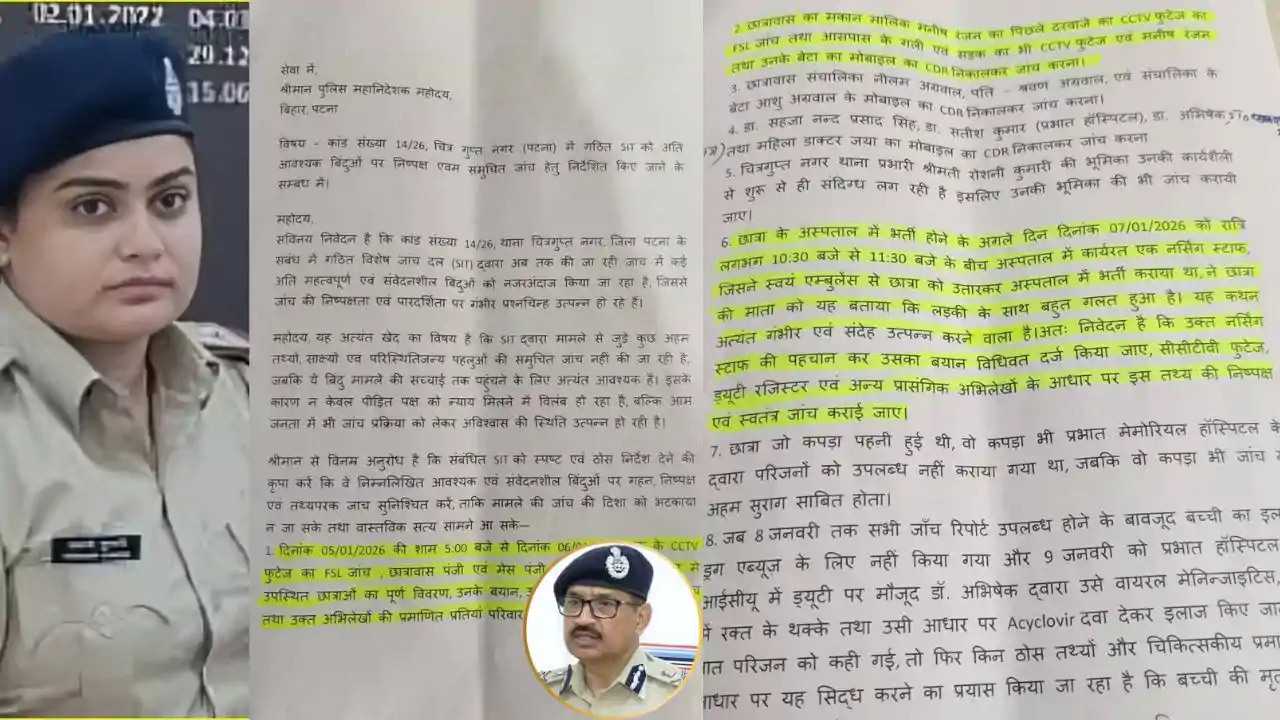 02.01.2022 04.01
29.12
15.00
सेवा में,
श्रीमान पुलिस महानिदेशक महोदय,
बिहार, पटना
विषय - कांड संख्या 14/26, चित्र गुप्त नगर (पटना) में गठित SIT को अति
आवश्यक बिंदुओं पर निष्पक्ष एवम समुचित जांच हेतु निर्देशित किए जाने के
सम्बंध में।
महोदय,
सविनय निवेदन है कि कांड संख्या 14/26, थाना चित्रगुप्त नगर, जिला पटना के
सबंध में गठित विशेष जांच दल (SIT) द्वारा अब तक की जा रही जांच में कई
अति महत्वपूर्ण एवं संवेदनशील बिंदुओं को नजरअंदाज किया जा रहा है, जिससे
जांच की निष्पक्षता एवं पारदर्शिता पर गंभीर प्रश्नचिन्ह उत्पन्न हो रहे हैं।
महोदय, यह अत्यंत खेद का विषय है कि SIT द्वारा मामले से जुड़े कुछ अहम
तथ्यों, साक्ष्यों एवं परिस्थितिजन्य पहलुओं की समुचित जांच नहीं की जा रही है,
जबकि ये बिंदु मामले की सच्चाई तक पहुंचने के लिए अत्यंत आवश्यक हैं। इसके
कारण न केवल पीड़ित पक्ष को न्याय मिलने में विलंब हो रहा है, बल्कि आम
जनता में भी जांच प्रक्रिया को लेकर अविश्वास की स्थिति उत्पन्न हो रही है।
श्रीमान से विनम्र अनुरोध है कि संबंधित SIT को स्पष्ट एवं ठोस निर्देश देने की
कृपा करें कि वे निम्नलिखित आवश्यक एवं संवेदनशील बिंदुओं पर गहन, निष्पक्ष
एवं तथ्यपरक जांच सुनिश्चित करें, ताकि मामले की जांच की दिशा को भटकाया
न जा सके तथा वास्तविक सत्य सामने आ सके—
1. दिनांक 05/01/2026 की शाम 5:00 बजे से दिनांक के CCTV
फुटेज का FSL जांच , छात्रावास पंजी एवं मेस पंजी में
उपस्थित छात्राओं का पूर्ण विवरण, उनके बयान,
तथा उक्त अभिलेखों की प्रमाणित प्रतियां परिवार
2. छात्रावास का मकान मालिक मनीष रंजन का पिछले दरवाजे का CCTV फुटेज का
FSL जांच तथा आसपास के गली एवं सड़क का भी CCTV फुटेज एवं मनीष रंजन
तथा उनके बेटा का मोबाइल का CDR निकालकर जांच करना।
3. छात्रावास संचालिका नीलम अग्रवाल, पति - श्रवण अग्रवाल, एवं संचालिका के
बेटा आशु अग्रवाल के मोबाइल का CDR निकालकर जांच करना।
4. डा. सहजा नन्द प्रसाद सिंह, डा. सतीश कुमार (प्रभात हॉस्पिटल), डा. अभिषेक
तथा महिला डाक्टर जया का मोबाइल का CDR निकालकर जांच करना
5. चित्रगुप्त नगर थाना प्रभारी श्रीमती रोशनी कुमारी की भूमिका उनकी कार्यशैली
से शुरू से ही संदिग्ध लग रही है इसलिए उनकी भूमिका की भी जांच करायी
जाए।
6. छात्रा के अस्पताल में भर्ती होने के अगले दिन दिनांक 07/01/2026 को रात्रि
लगभग 10:30 बजे से 11:30 बजे के बीच अस्पताल में कार्यरत एक नर्सिंग स्टाफ,
जिसने स्वयं एम्बुलेंस से छात्रा को उतारकर अस्पताल में भर्ती कराया था, ने छात्रा
की माता को यह बताया कि लड़की के साथ बहुत गलत हुआ है। यह कथन
अत्यंत गंभीर एवं संदेह उत्पन्न करने वाला है।अतः निवेदन है कि उक्त नर्सिंग
स्टाफ की पहचान कर उसका बयान विधिवत दर्ज किया जाए, सीसीटीवी फुटेज,
ड्यूटी रजिस्टर एवं अन्य प्रासंगिक अभिलेखों के आधार पर इस तथ्य की निष्पक्ष
एवं स्वतंत्र जांच कराई जाए।
7. छात्रा जो कपड़ा पहनी हुई थी, वो कपड़ा भी प्रभात मेमोरियल हॉस्पिटल के
द्वारा परिजनों को उपलब्ध नहीं कराया गया था, जबकि वो कपड़ा भी जांच
अहम सुराग साबित होता।
8. जब 8 जनवरी तक सभी जाँच रिपोर्ट उपलब्ध होने के बावजूद बच्ची का
ड्रग एब्यूज के लिए नहीं किया गया और 9 जनवरी को प्रभात हॉस्पिटल
आईसीयू में ड्यूटी पर मौजूद डॉ. अभिषेक द्वारा उसे वायरल मेनिन्जाइटिस,
में रक्त के थक्के तथा उसी आधार पर Acyclovir दवा देकर इलाज किए
परिजन को कही गई, तो फिर किन ठोस तथ्यों और चिकित्सकीय
आधार पर यह सिद्ध करने का प्रयास किया जा रहा है कि बच्ची की